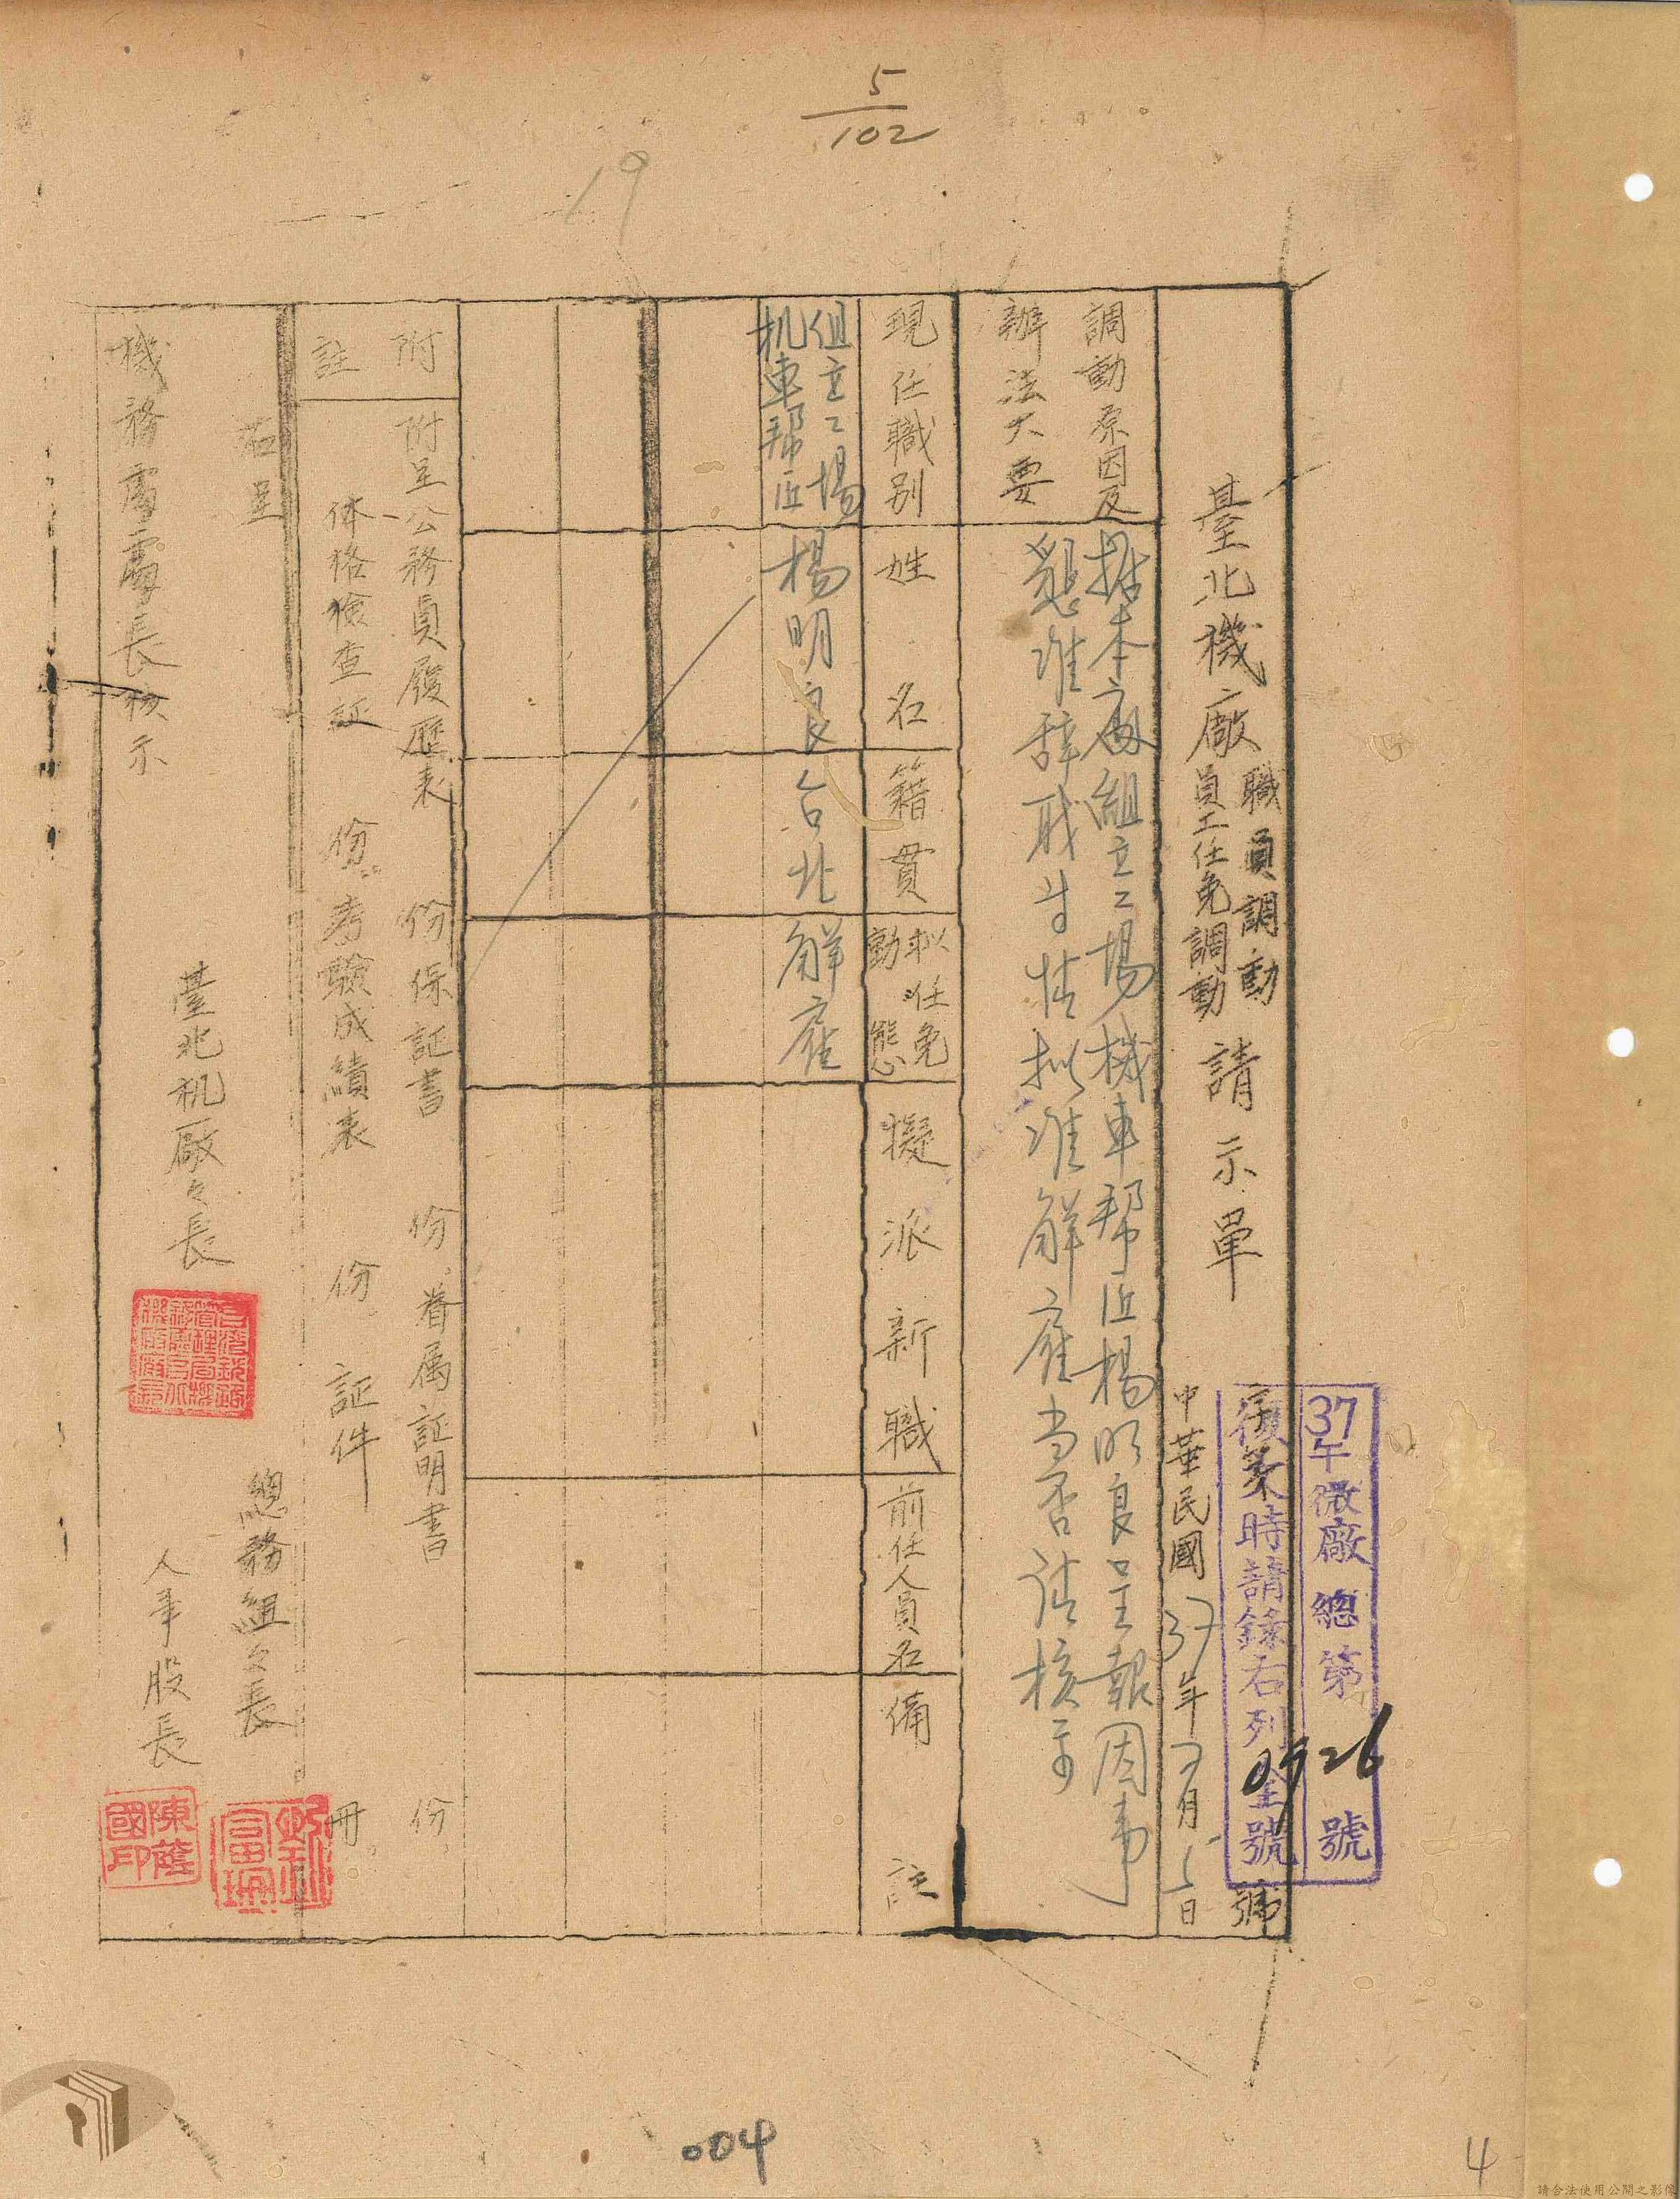 5/102
19
臺北機廠 職員調動 員工任免調動 請示單
37年機廠總第0526號
復文時請錄右列全號
號
中華民國37年7月5日
調動原因及辦法大要
據本廠組立工場機車帮匠楊明良呈報因事
懇准辞职等情擬准解雇當否請核示
現任職別
姓名
籍貫
拟任免動態
擬派新職
前任人員名
備註
組立工場
机車帮匠
楊明良
台北
解雇
附註
附呈公務員履歷表 份保証書 份眷属証明書 份
体格檢查証 份考驗成績表 份 証件 冊
右呈
機務處處長核示
臺北机廠々長
總務組々長
人事股長
陳蔭國印
004
4
請合法使用公開之影像